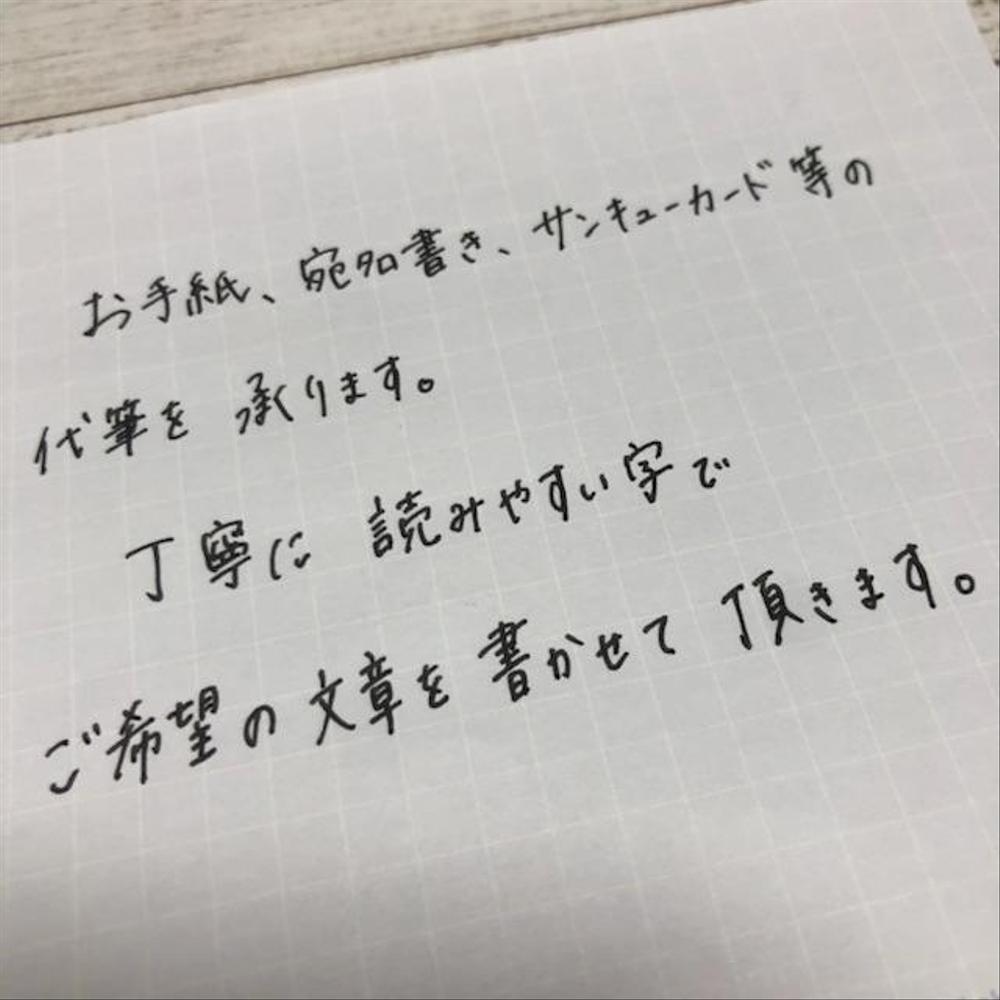 お手紙、宛名書き、サンキューカード等の
代筆を承ります。
丁寧に読みやすい字で
ご希望の文章を書かせて頂きます。